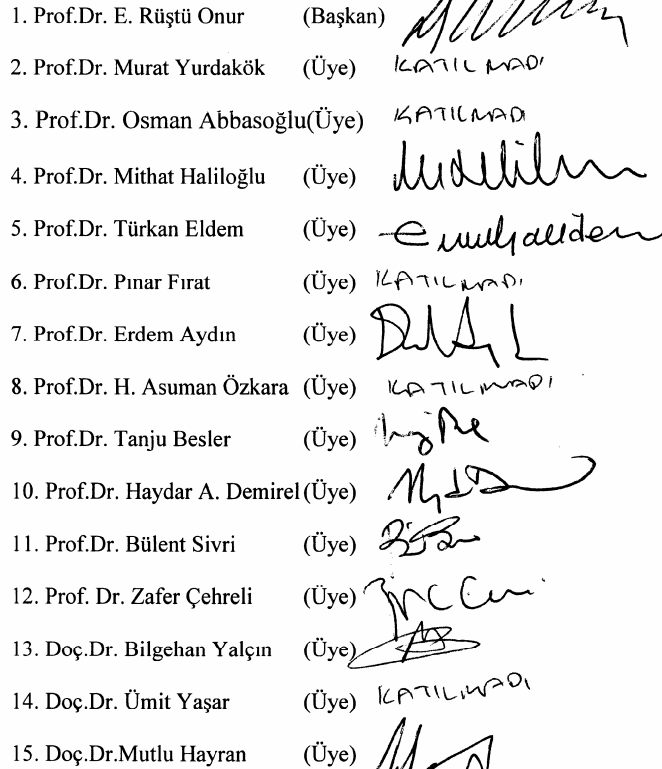 1. Prof.Dr. E. Rüştü Onur (Başkan)
2. Prof.Dr. Murat Yurdakök (Üye) KATILMADI
3. Prof.Dr. Osman Abbasoğlu(Üye) KATILMADI
4. Prof.Dr. Mithat Haliloğlu (Üye)
5. Prof.Dr. Türkan Eldem (Üye)
6. Prof.Dr. Pınar Fırat (Üye) KATILMADI
7. Prof.Dr. Erdem Aydın (Üye)
8. Prof.Dr. H. Asuman Özkara (Üye) KATILMADI
9. Prof.Dr. Tanju Besler (Üye)
10. Prof.Dr. Haydar A. Demirel(Üye)
11. Prof.Dr. Bülent Sivri (Üye)
12. Prof. Dr. Zafer Çehreli (Üye)
13. Doç.Dr. Bilgehan Yalçın (Üye)
14. Doç.Dr. Ümit Yaşar (Üye) KATILMADI
15. Doç.Dr.Mutlu Hayran (Üye)